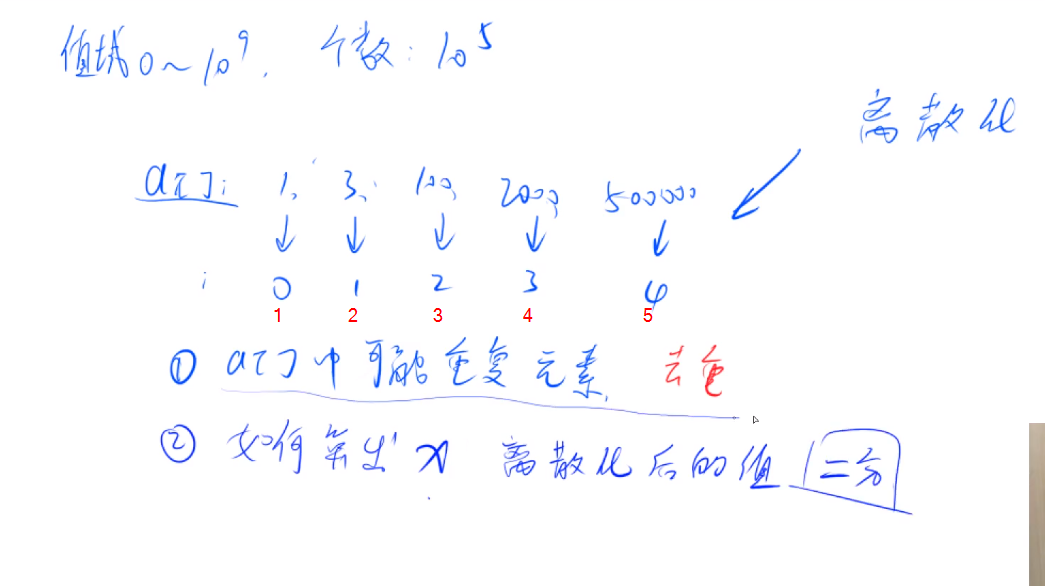 值域0~10⁹. 个数: 10⁵
离散化
a[]: 1, 3, 100, 2000, 500000
↓ ↓ ↓ ↓ ↓
i 0 1 2 3 4
1 2 3 4 5
① a[]中可能重复元素. 去重
② 如何算出x 离散化后的值 二分